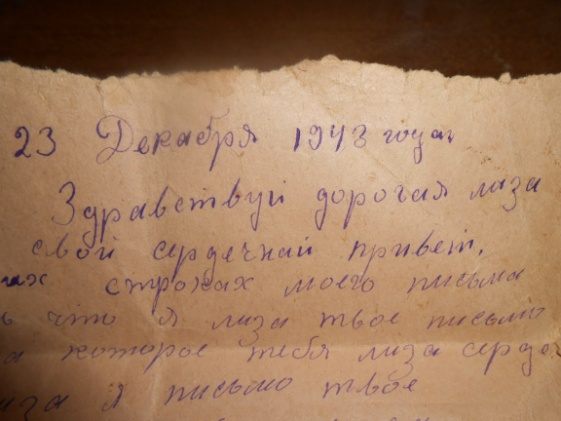 23 Декабря 1943 года
Здравствуй дорогая лиза
свой сердечнай привет,
строках моего письма
что я лиза твое письмо
а которое тебя лиза сердо
иза я письмо твое